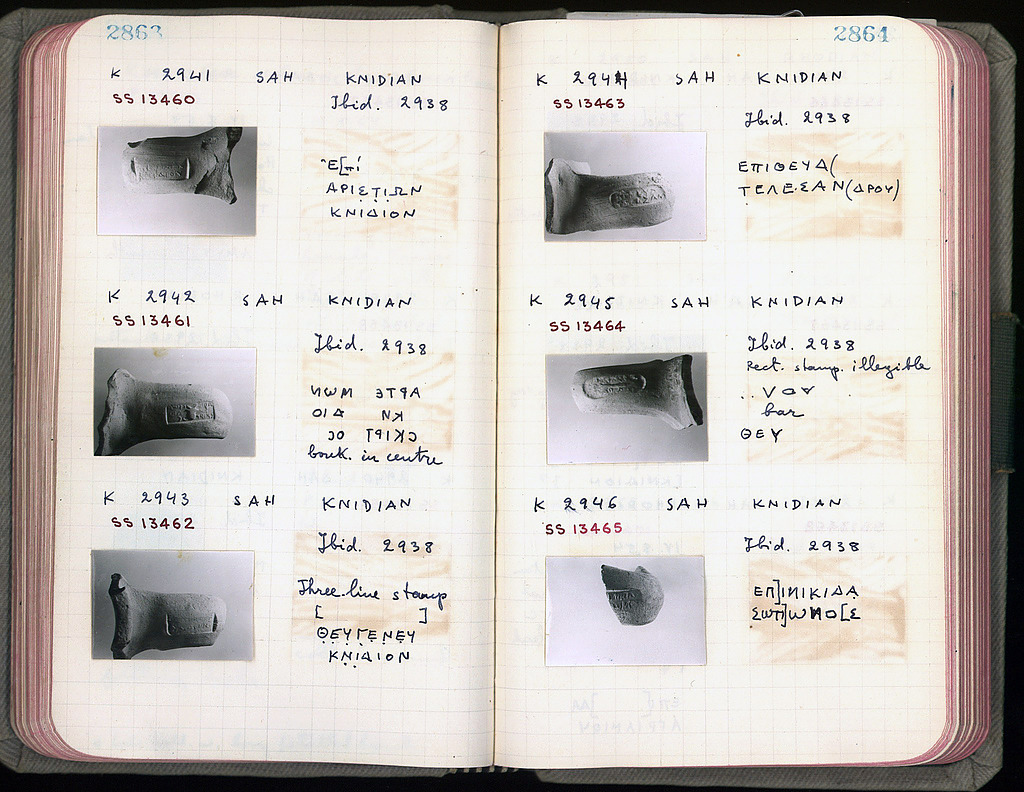 2863
K 2941 SAH KNIDIAN
SS 13460
Ibid. 2938
Ἐ[πί
ΑΡΙΣΤΙΩΝ
ΚΝΙΔΙΟΝ
K 2942 SAH KNIDIAN
SS 13461
Ibid. 2938
ΑΡΤΕ ΜΩΝ
ΚΝ ΔΙΟ
bouk. in centre
K 2943 SAH KNIDIAN
SS 13462
Ibid. 2938
Three-line stamp
[ ]
ΘΕΥΓΕΝΕΥ
ΚΝΙΔΙΟΝ
2864
K 2944 SAH KNIDIAN
SS 13463
Ibid. 2938
ΕΠΙΘΕΥΔ(
ΤΕΛΕΣΑΝ(ΔΡΟΥ)
K 2945 SAH KNIDIAN
SS 13464
Ibid. 2938
Rect. stamp. illegible
bar
ΘΕΥ
K 2946 SAH KNIDIAN
SS 13465
Ibid. 2938
ΕΠ]ΙΝΙΚΙΔΑ
ΣΩΠ]ΩΝΟ[Σ